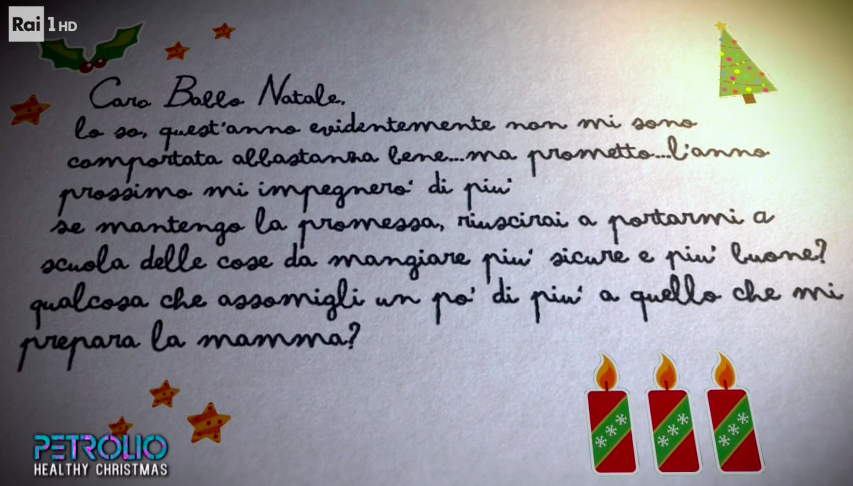 Rai 1HD
Caro Babbo Natale,
lo so, quest'anno evidentemente non mi sono
comportata abbastanza bene...ma prometto...l'anno
prossimo mi impegnero' di piu'
se mantengo la promessa, riuscirai a portarmi a
scuola delle cose da mangiare piu' sicure e piu' buone?
qualcosa che assomigli un po' di piu' a quello che mi
prepara la mamma?
PETROLIO
HEALTHY CHRISTMAS